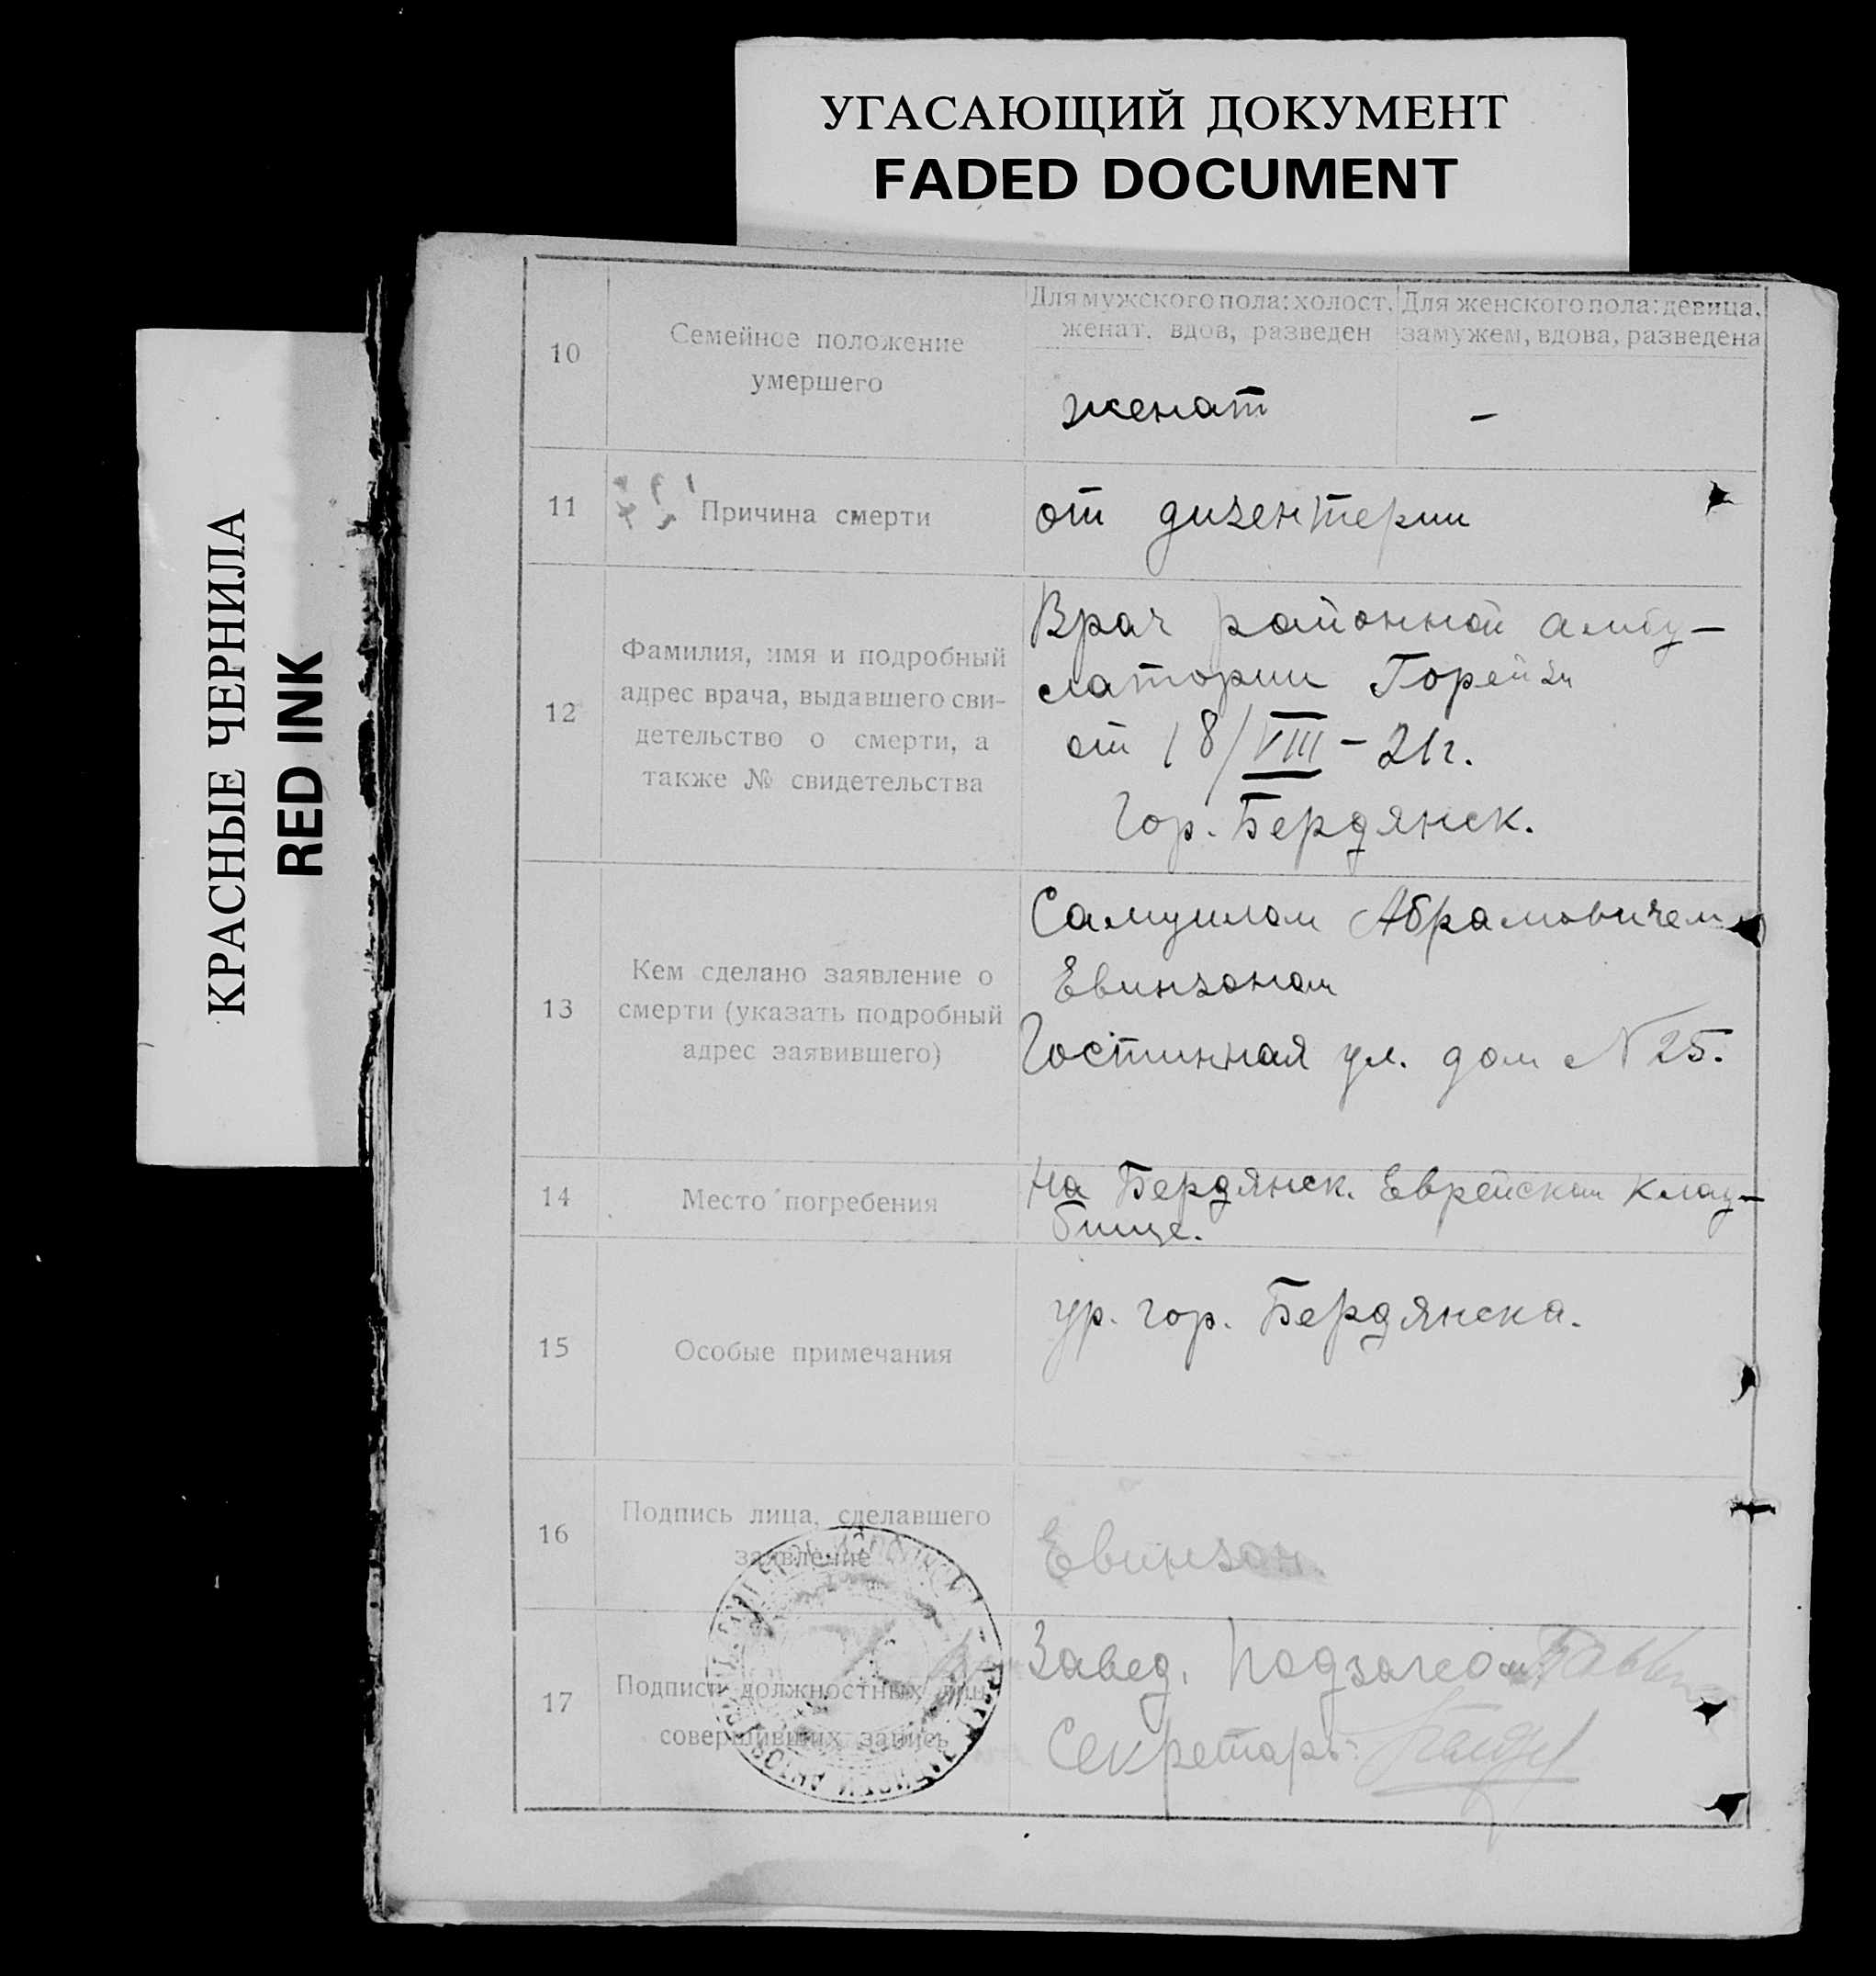 УГАСАЮЩИЙ ДОКУМЕНТ
FADED DOCUMENT
КРАСНЫЕ ЧЕРНИЛА
RED INK
10
Семейное положение
умершего
Для мужского пола: холост,
женат, вдов, разведен
Для женского пола: девица,
замужем, вдова, разведена
женат
-
11
Причина смерти
от дизентерии
12
Фамилия, имя и подробный
адрес врача, выдавшего сви-
детельство о смерти, а
также № свидетельства
Врач районной амбу-
латории
от 18/VIII - 21г.
Гор. Бердянск.
13
Кем сделано заявление о
смерти (указать подробный
адрес заявившего)
Самуилом Абрамовичем
Евинзоном
Гостинная ул. дом № 25.
14
Место погребения
На Бердянск. Еврейском клад-
бище.
15
Особые примечания
ур. гор. Бердянска.
16
Подпись лица, сделавшего
заявление
Евинзон.
17
Подписи должностных лиц,
совершивших запись
Завед. Подзагсом
Секретарь: